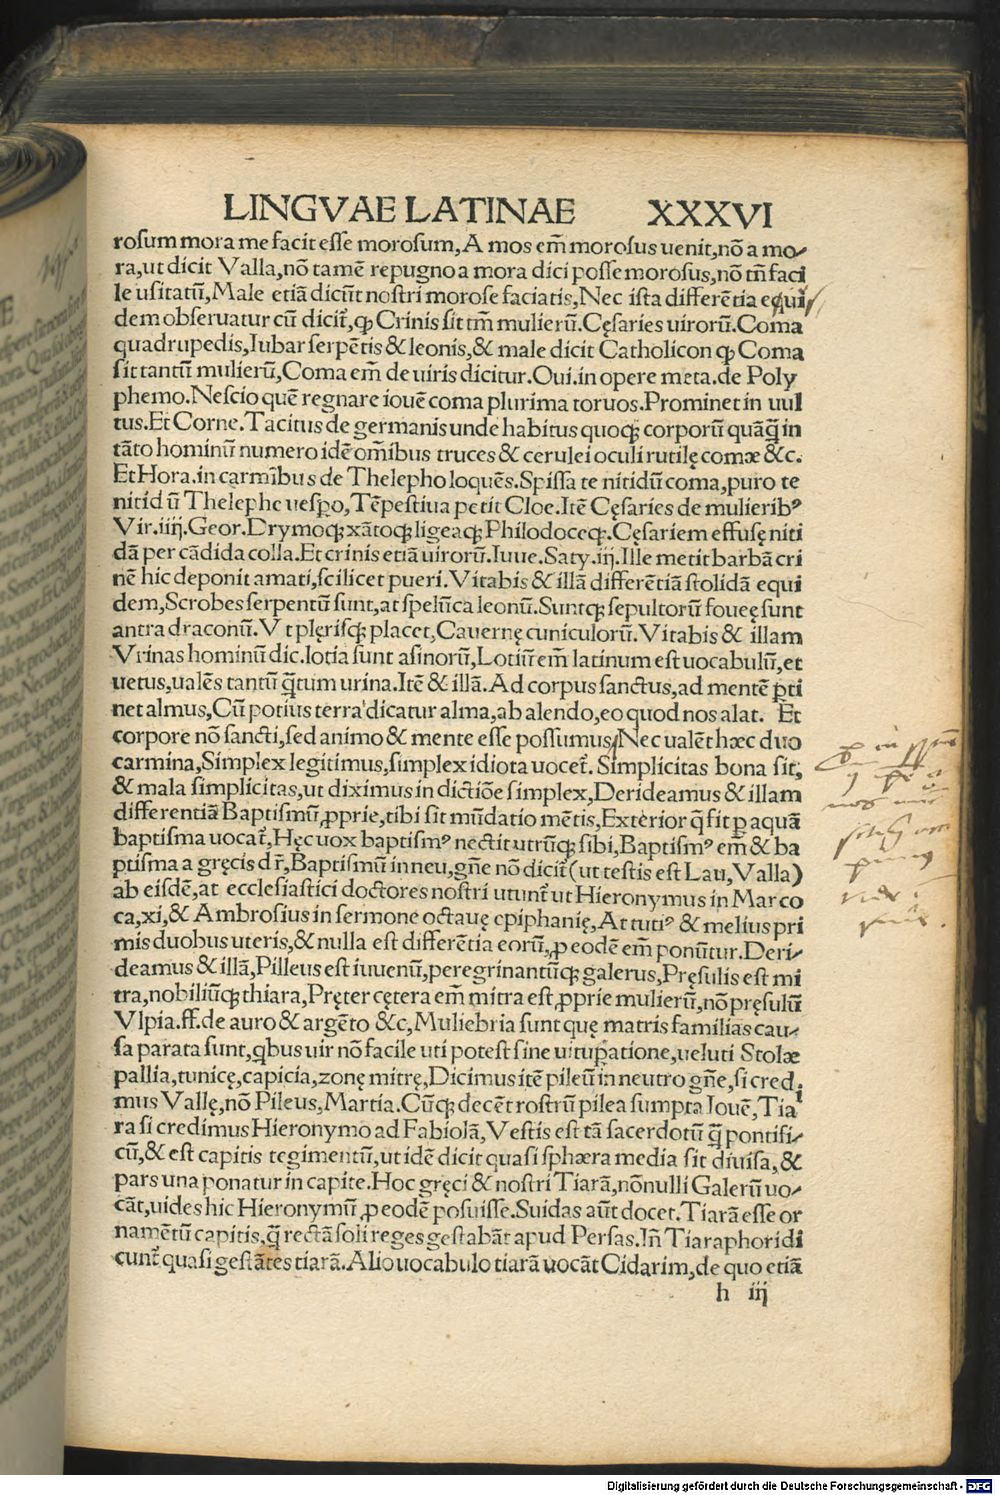 LINGVAE LATINAE XXXVI
roſum mora me facit eſſe moroſum, A mos em̄ moroſus uenit, nō a mo-
ra, ut dicit Valla, nō tamē repugno a mora dici poſſe moroſus, nō tn̄ faci
le uſitatū, Male etiā dicūt noſtri moroſe faciatis, Nec iſta differētia equi
dem obſeruatur cū dicit᷑, ꝙ Crinis ſit tm̄ mulierū. Cęſaries uirorū. Coma
quadrupedis, Iubar ſerpētis & leonis, & male dicit Catholicon ꝙ Coma
ſit tantū mulierū, Coma em̄ de uiris dicitur. Oui. in opere meta. de Poly
phemo. Neſcio quē regnare iouē coma plurima toruos. Prominet in uul
tus. Et Corne. Tacitus de germanis unde habitus quoqꝫ corporū quāq̄ in
tāto hominū numero idē om̄ibus truces & cerulei oculi rutilę comæ &c.
Et Hora. in carmībus de Thelepho loquēs. Spiſſa te nitidū coma, puro te
nitidū Thelephe ueſꝑo, Tēpeſtiua petit Cloe. Itē Cęſaries de mulieribꝰ
Vir. iiij. Geor. Drymoqꝫ xātoqꝫ ligeaqꝫ Philodoceqꝫ. Cęſariem effuſę niti
dā per cādida colla. Et crinis etiā uirorū. Iuue. Saty. iij. Ille metit barbā cri
nē hic deponit amati, ſcilicet pueri. Vitabis & illā differētiā ſtolidā equi
dem, Scrobes ſerpentū ſunt, at ſpelūca leonū. Suntqꝫ ſepultorū foueę ſunt
antra draconū. Vt plęriſqꝫ placet, Cauernę cuniculorū. Vitabis & illam
Vrinas hominū dic. lotia ſunt aſinorū, Lotiū em̄ latinum eſt uocabulū, et
uetus, ualēs tantū q̄tum urina. Itē & illā. Ad corpus ſanctus, ad mentē ꝑti
net almus, Cū potius terra dicatur alma, ab alendo, eo quod nos alat. Et
corpore nō ſancti, ſed animo & mente eſſe poſſumus, Nec ualēt hæc duo
carmina, Simplex legitimus, ſimplex idiota uocet᷑. Simplicitas bona ſit,
& mala ſimplicitas, ut diximus in dictiōe ſimplex, Derideamus & illam
differentiā Baptiſmū ꝓprie, tibi ſit mūdatio mētis, Exterior q̄ fit ꝑ aquā
baptiſma uocat᷑, Hęc uox baptiſmꝰ nectit utrūqꝫ ſibi, Baptiſmꝰ em̄ & ba
ptiſma a gręcis dr̄, Baptiſmū in neu, gn̄e nō dicit᷑ (ut teſtis eſt Lau, Valla)
ab eiſdē, at eccleſiaſtici doctores noſtri utunt᷑ ut Hieronymus in Marco
ca, xi, & Ambroſius in ſermone octauę epiphanię, At tutiꝰ & melius pri
mis duobus uteris, & nulla eſt differētia eorū, ꝓ eodē em̄ ponūtur. Deri-
deamus & illā, Pilleus eſt iuuenū, peregrinantūqꝫ galerus, Pręſulis eſt mi
tra, nobiliūqꝫ thiara, Pręter cętera em̄ mitra eſt ꝓprie mulierū, nō pręſulū
Vlpia. ff. de auro & argēto &c, Muliebria ſunt quę matris familias cau-
ſa parata ſunt, qbus uir nō facile uti poteſt ſine uituꝑatione, ueluti Stolæ
pallia, tunicę, capicia, zonę mitrę, Dicimus itē pileū in neutro gn̄e, ſi credi
mus Vallę, nō Pileus, Martia. Cūqꝫ decēt roſtrū pilea ſumpta Iouē, Tia
ra ſi credimus Hieronymo ad Fabiolā, Veſtis eſt tā ſacerdotū q̄ pontifi-
cū, & eſt capitis tegimentū, ut idē dicit quaſi ſphæra media ſit diuiſa, &
pars una ponatur in capite. Hoc gręci & noſtri Tiarā, nōnulli Galerū uo-
cāt, uides hic Hieronymū ꝓ eodē poſuiſſe. Suidas aūt docet. Tiarā eſſe or
namētū capitis, q̄ rectā ſoli reges geſtabāt apud Perſas. Iñ Tiaraphori di
cunt᷑ quaſi geſtātes tiarā. Alio uocabulo tiarā uocāt Cidarim, de quo etiā
h iij
Digitalisierung gefördert durch die Deutsche Forschungsgemeinschaft - DFG